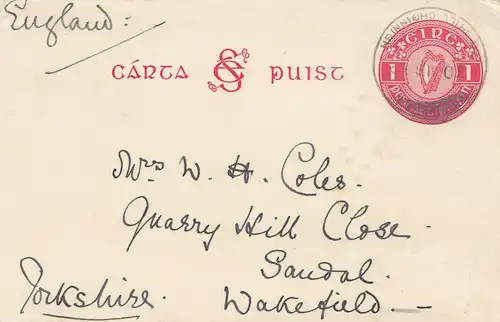 England:
CÁRTA SÉ PUIST
ÉIRE
1 1
Mrs W. H. Coles.
Quarry Hill Close.
Sandal.
Yorkshire. Wakefield.